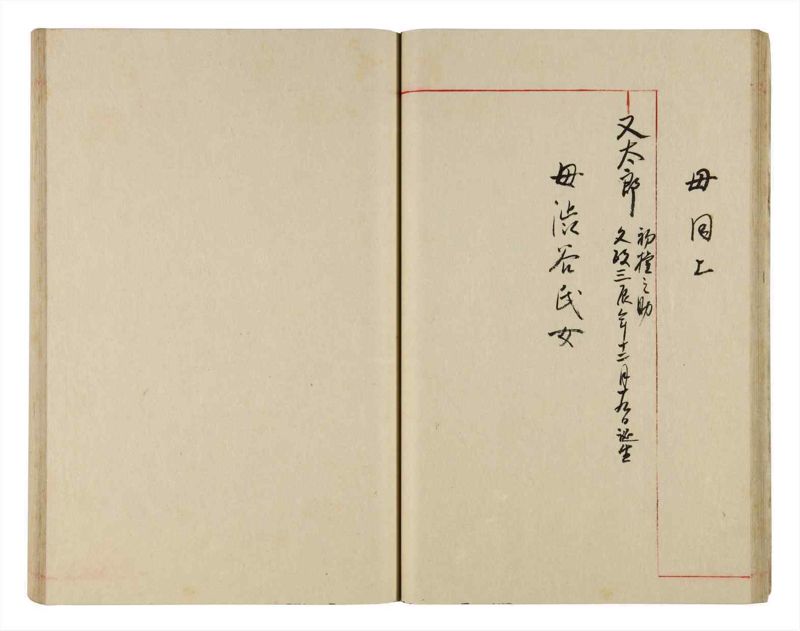 母同上
又太郎
初権之助
文政三辰年十二月十九日誕生
母渋谷氏女